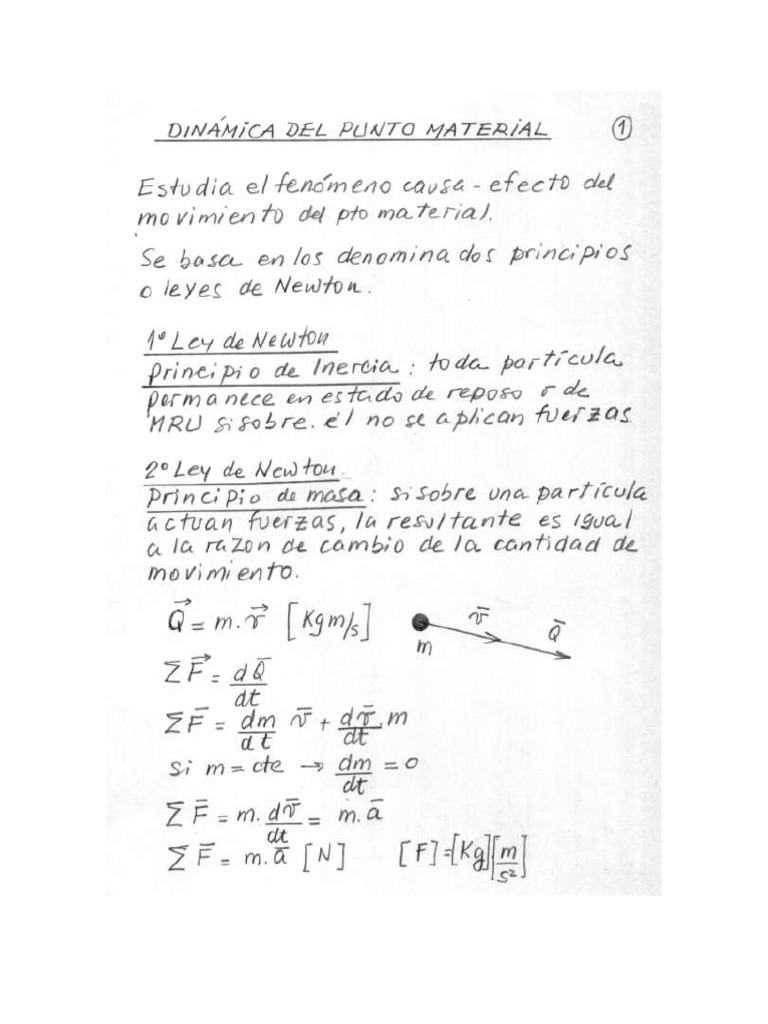 DINÁMICA DEL PUNTO MATERIAL 1
Estudia el fenómeno causa - efecto del
movimiento del pto material.
Se basa en los denominados principios
o leyes de Newton.
1º Ley de Newton
Principio de Inercia : toda partícula
permanece en estado de reposo o de
MRU si sobre. él no se aplican fuerzas
2º Ley de Newton.
Principio de masa : si sobre una partícula
actuan fuerzas, la resultante es igual
a la razon de cambio de la cantidad de
movimiento.
Q⃗ = m.v⃗ [Kgm/s] m v̄ Q̄
ΣF⃗ = dQ̄/dt
ΣF̄ = dm/dt v̄ + dv̄/dt.m
si m = cte → dm/dt = 0
ΣF̄ = m.dv̄/dt = m.ā
ΣF̄ = m.ā [N] [F]=[Kg][m/s²]